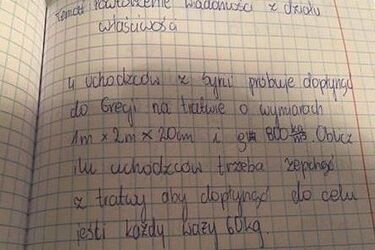 Temat: Powtórzenie wiadomości z działu
właściwości
4 uchodźców z Syrii próbuje dopłynąć
do Grecji na tratwie o wymiarach
1m × 2m × 20cm i 800 kg/m³. Oblicz
ilu uchodźców trzeba zepchnąć
z tratwy aby dopłynąć do celu
jeśli każdy waży 60kg.